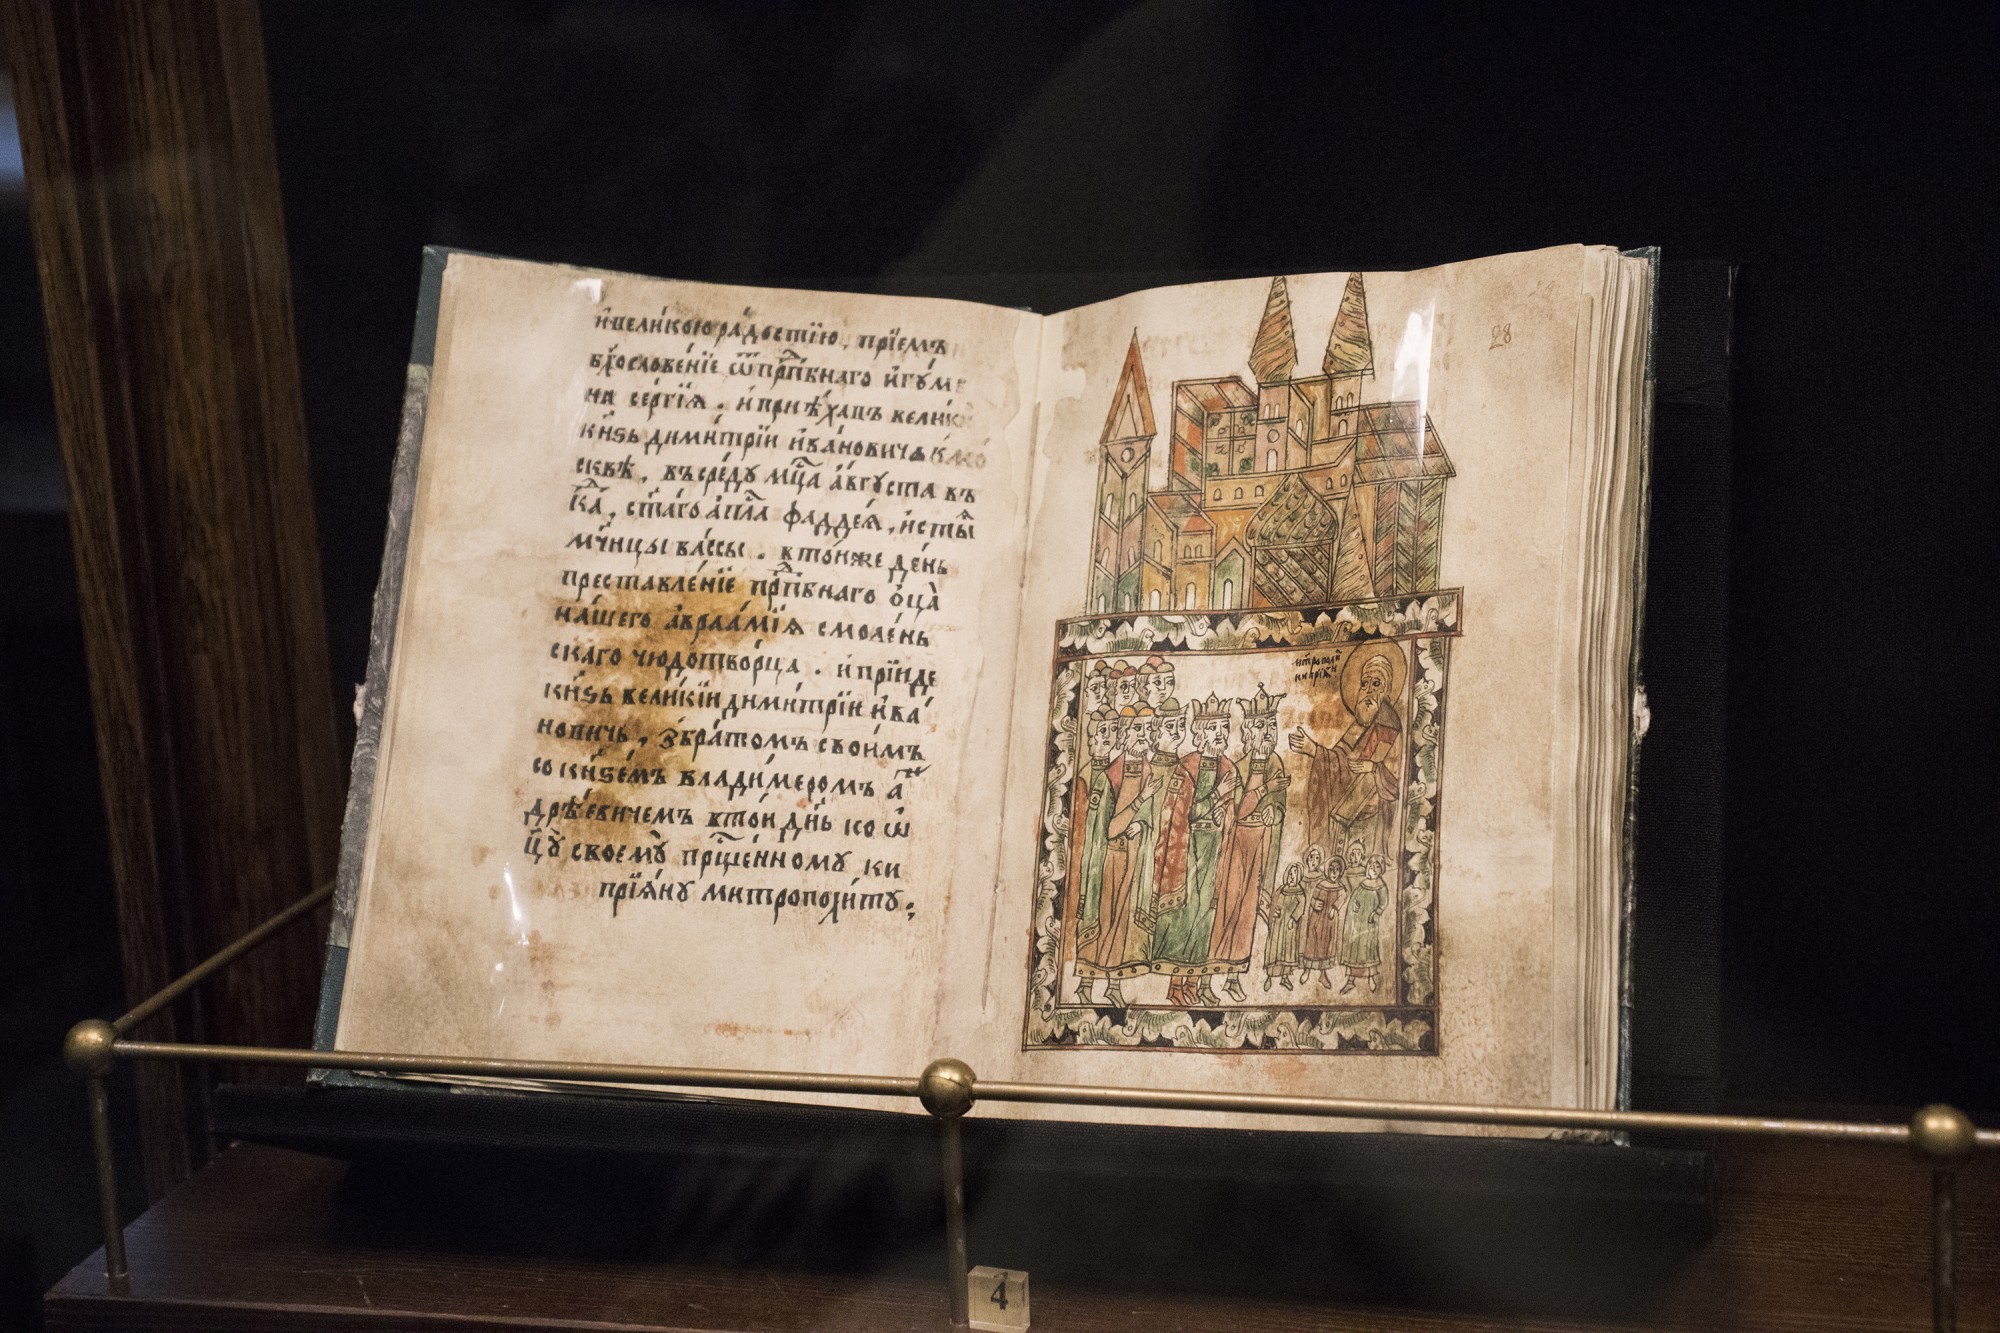 и҆ великою ра́достїю, прїемъ
бл҃ослове́нїе ѿ прпⷣбнаго и҆гꙋ́ме
на се́ргїѧ. и҆ прие́ха въ вели
кн҃ѕь дими́трїи и҆ва́новичь к мо
сквѣ̀, въ сре́дꙋ мцⷭ҇а а҆́вгꙋста въ
к҃а, ст҃а́го а҆пⷭ҇ла фадде́ѧ, и҆ ст҃ы́ѧ
мч҃ницы ва́ссы. в то́иже де́нь
преставле́нїе прпⷣбнаго ѻ҆ц҃а̀
на́шего а҆враа́мїѧ смоле́нь
скаго чюдотво́рца. и҆ прїи́де
кн҃ѕь вели́кїи дими́трїи и҆ва́
новичь, з бра́томъ свои́мъ
со кн҃ѕе́мъ влади́меромъ а҆нⷣ
дрѣ́евичемъ в то́и дн҃ь ко ѿ
ц҃ꙋ̀ своемꙋ̀ прⷭ҇ще́нномꙋ ки
прїа́нꙋ митрополи́тꙋ.
28
митрополи́тъ
кипрїа́н
4